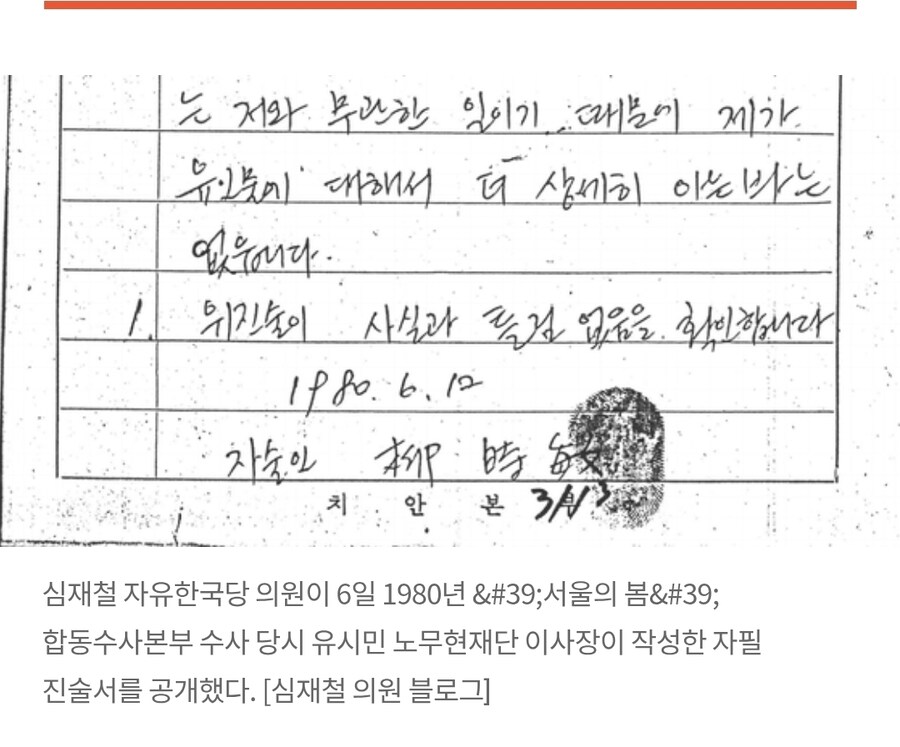 는 저와 무관한 일이기 때문에 제가
유인물에 대해서 더 상세히 아는바는
없읍니다.
1. 위진술이 사실과 틀림 없음을 확인합니다
1980. 6. 12
자술인 柳 時 敏
치 안 본
심재철 자유한국당 의원이 6일 1980년 &#39;서울의 봄&#39;
합동수사본부 수사 당시 유시민 노무현재단 이사장이 작성한 자필
진술서를 공개했다. [심재철 의원 블로그]